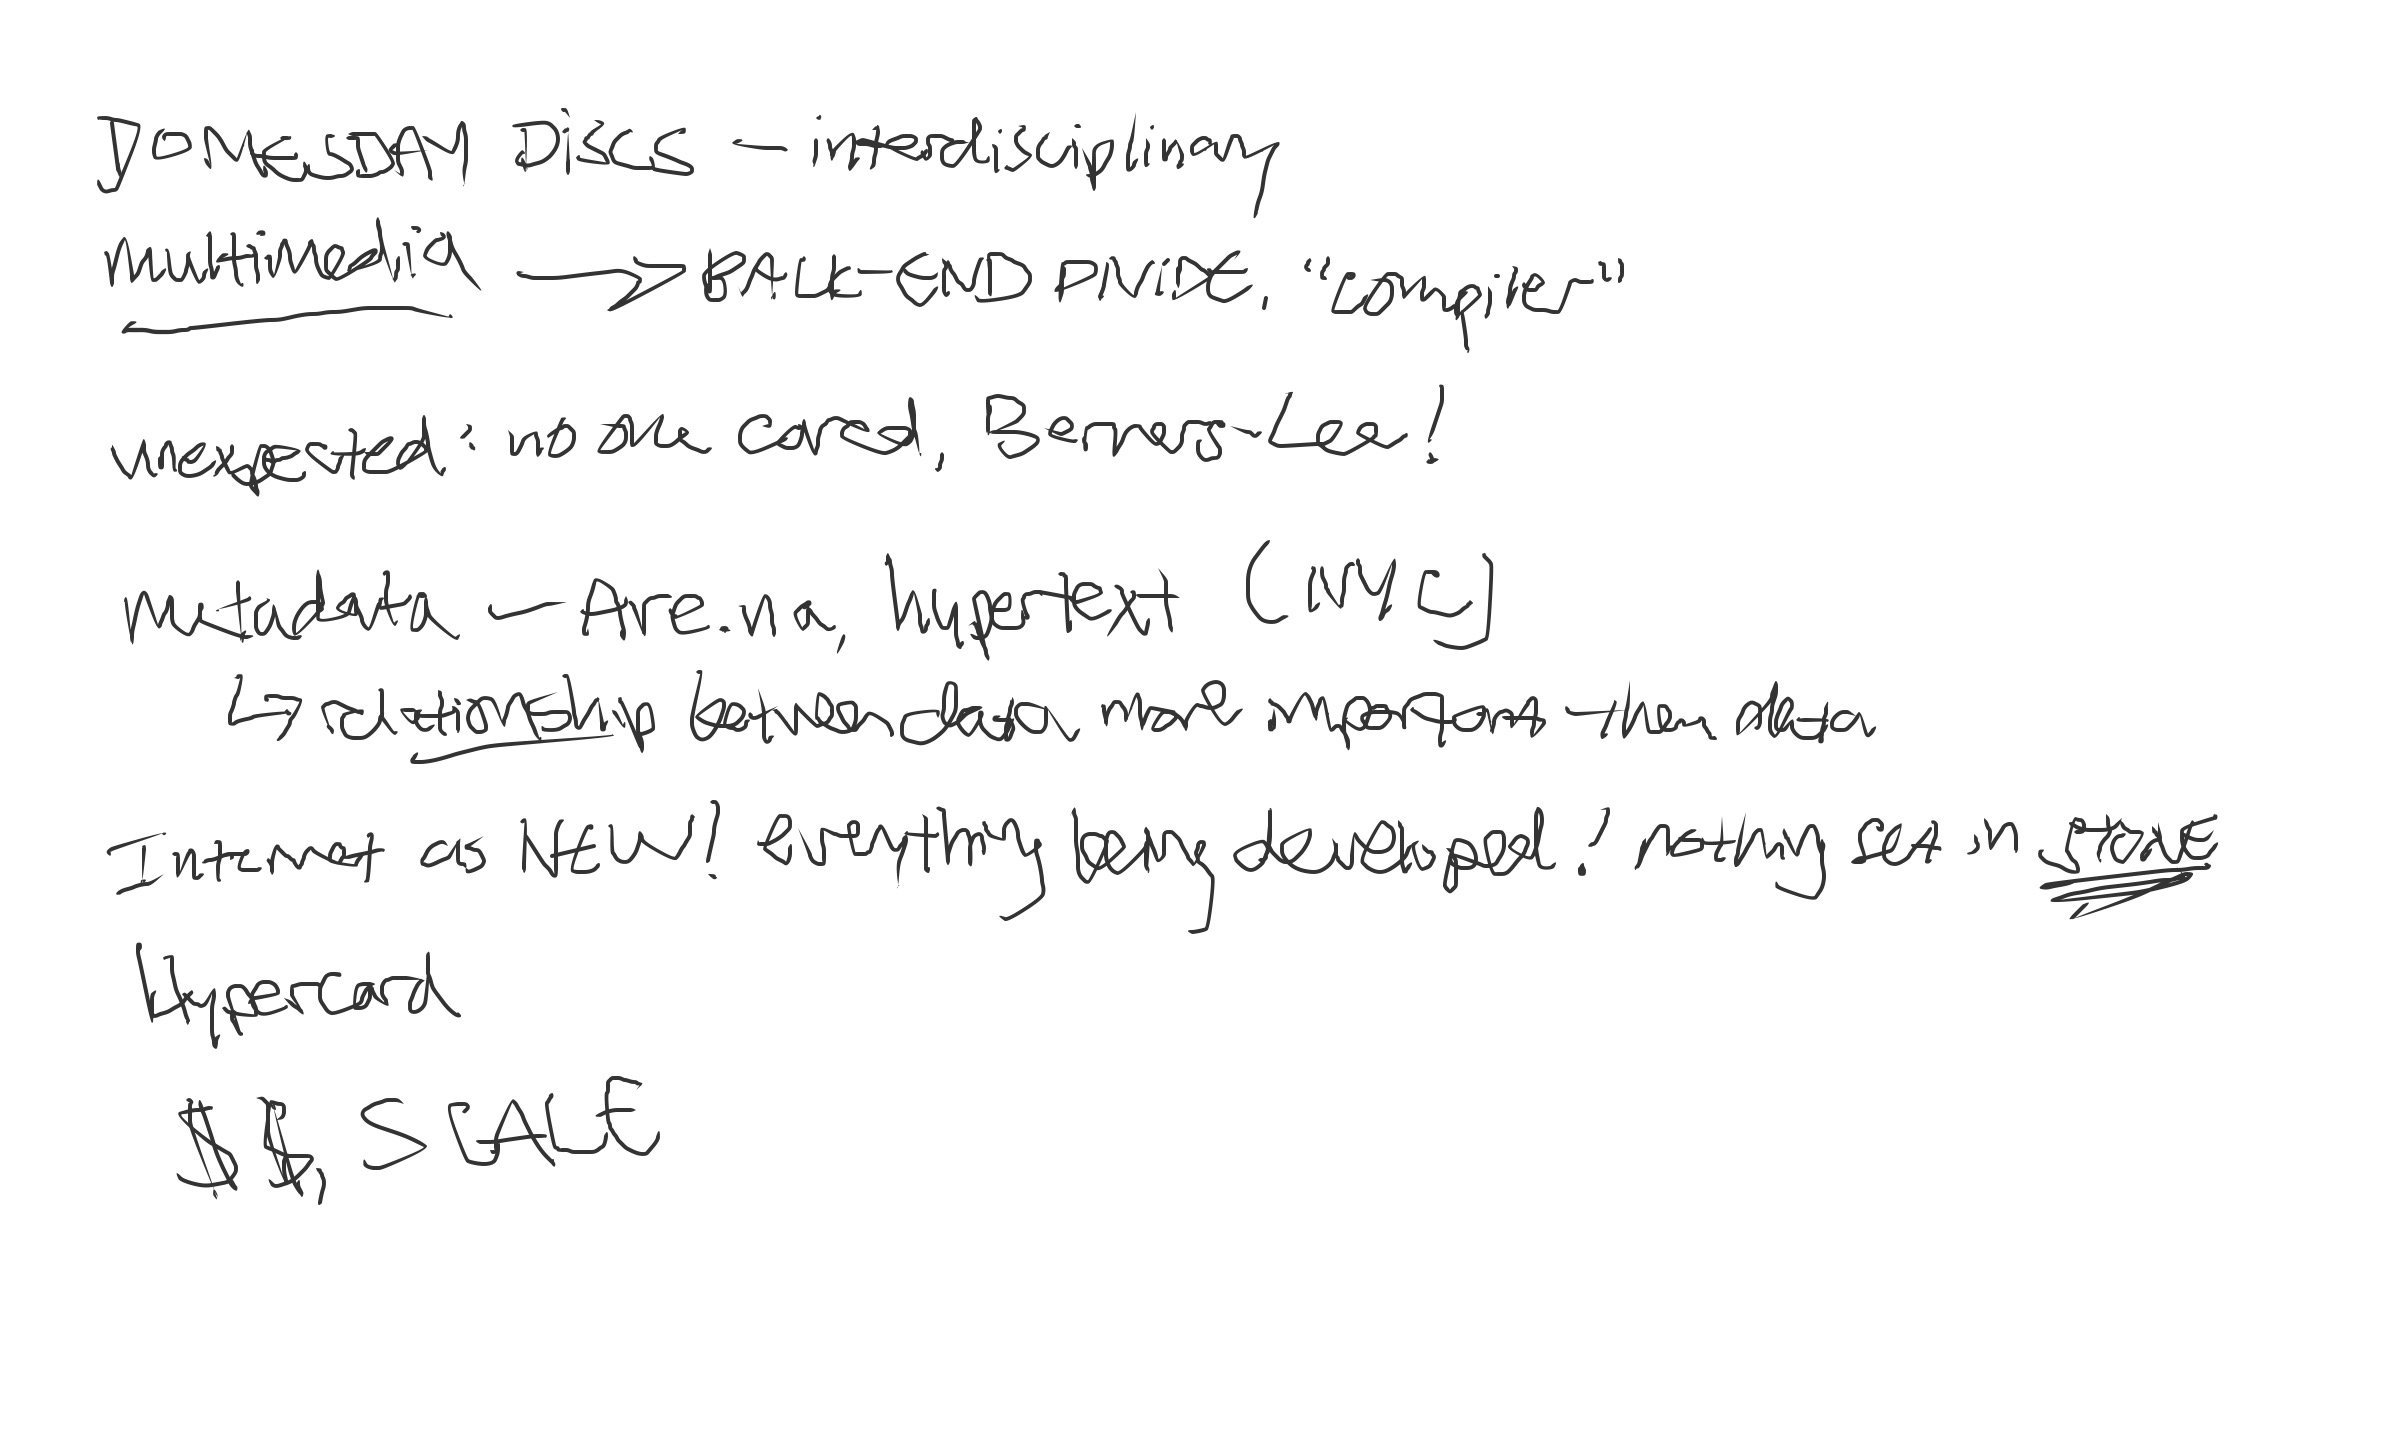 DOMESDAY DISCS – interdisciplinary
multimedia → BACK-END DIVIDE, "compiler"
unexpected: no one cared, Berners-Lee!
metadata – Are.na, hypertext (NYC)
↳ relationship between data more important than data
Internet as NEW! everything being developed! nothing set in STONE
Hypercard
$$, SCALE